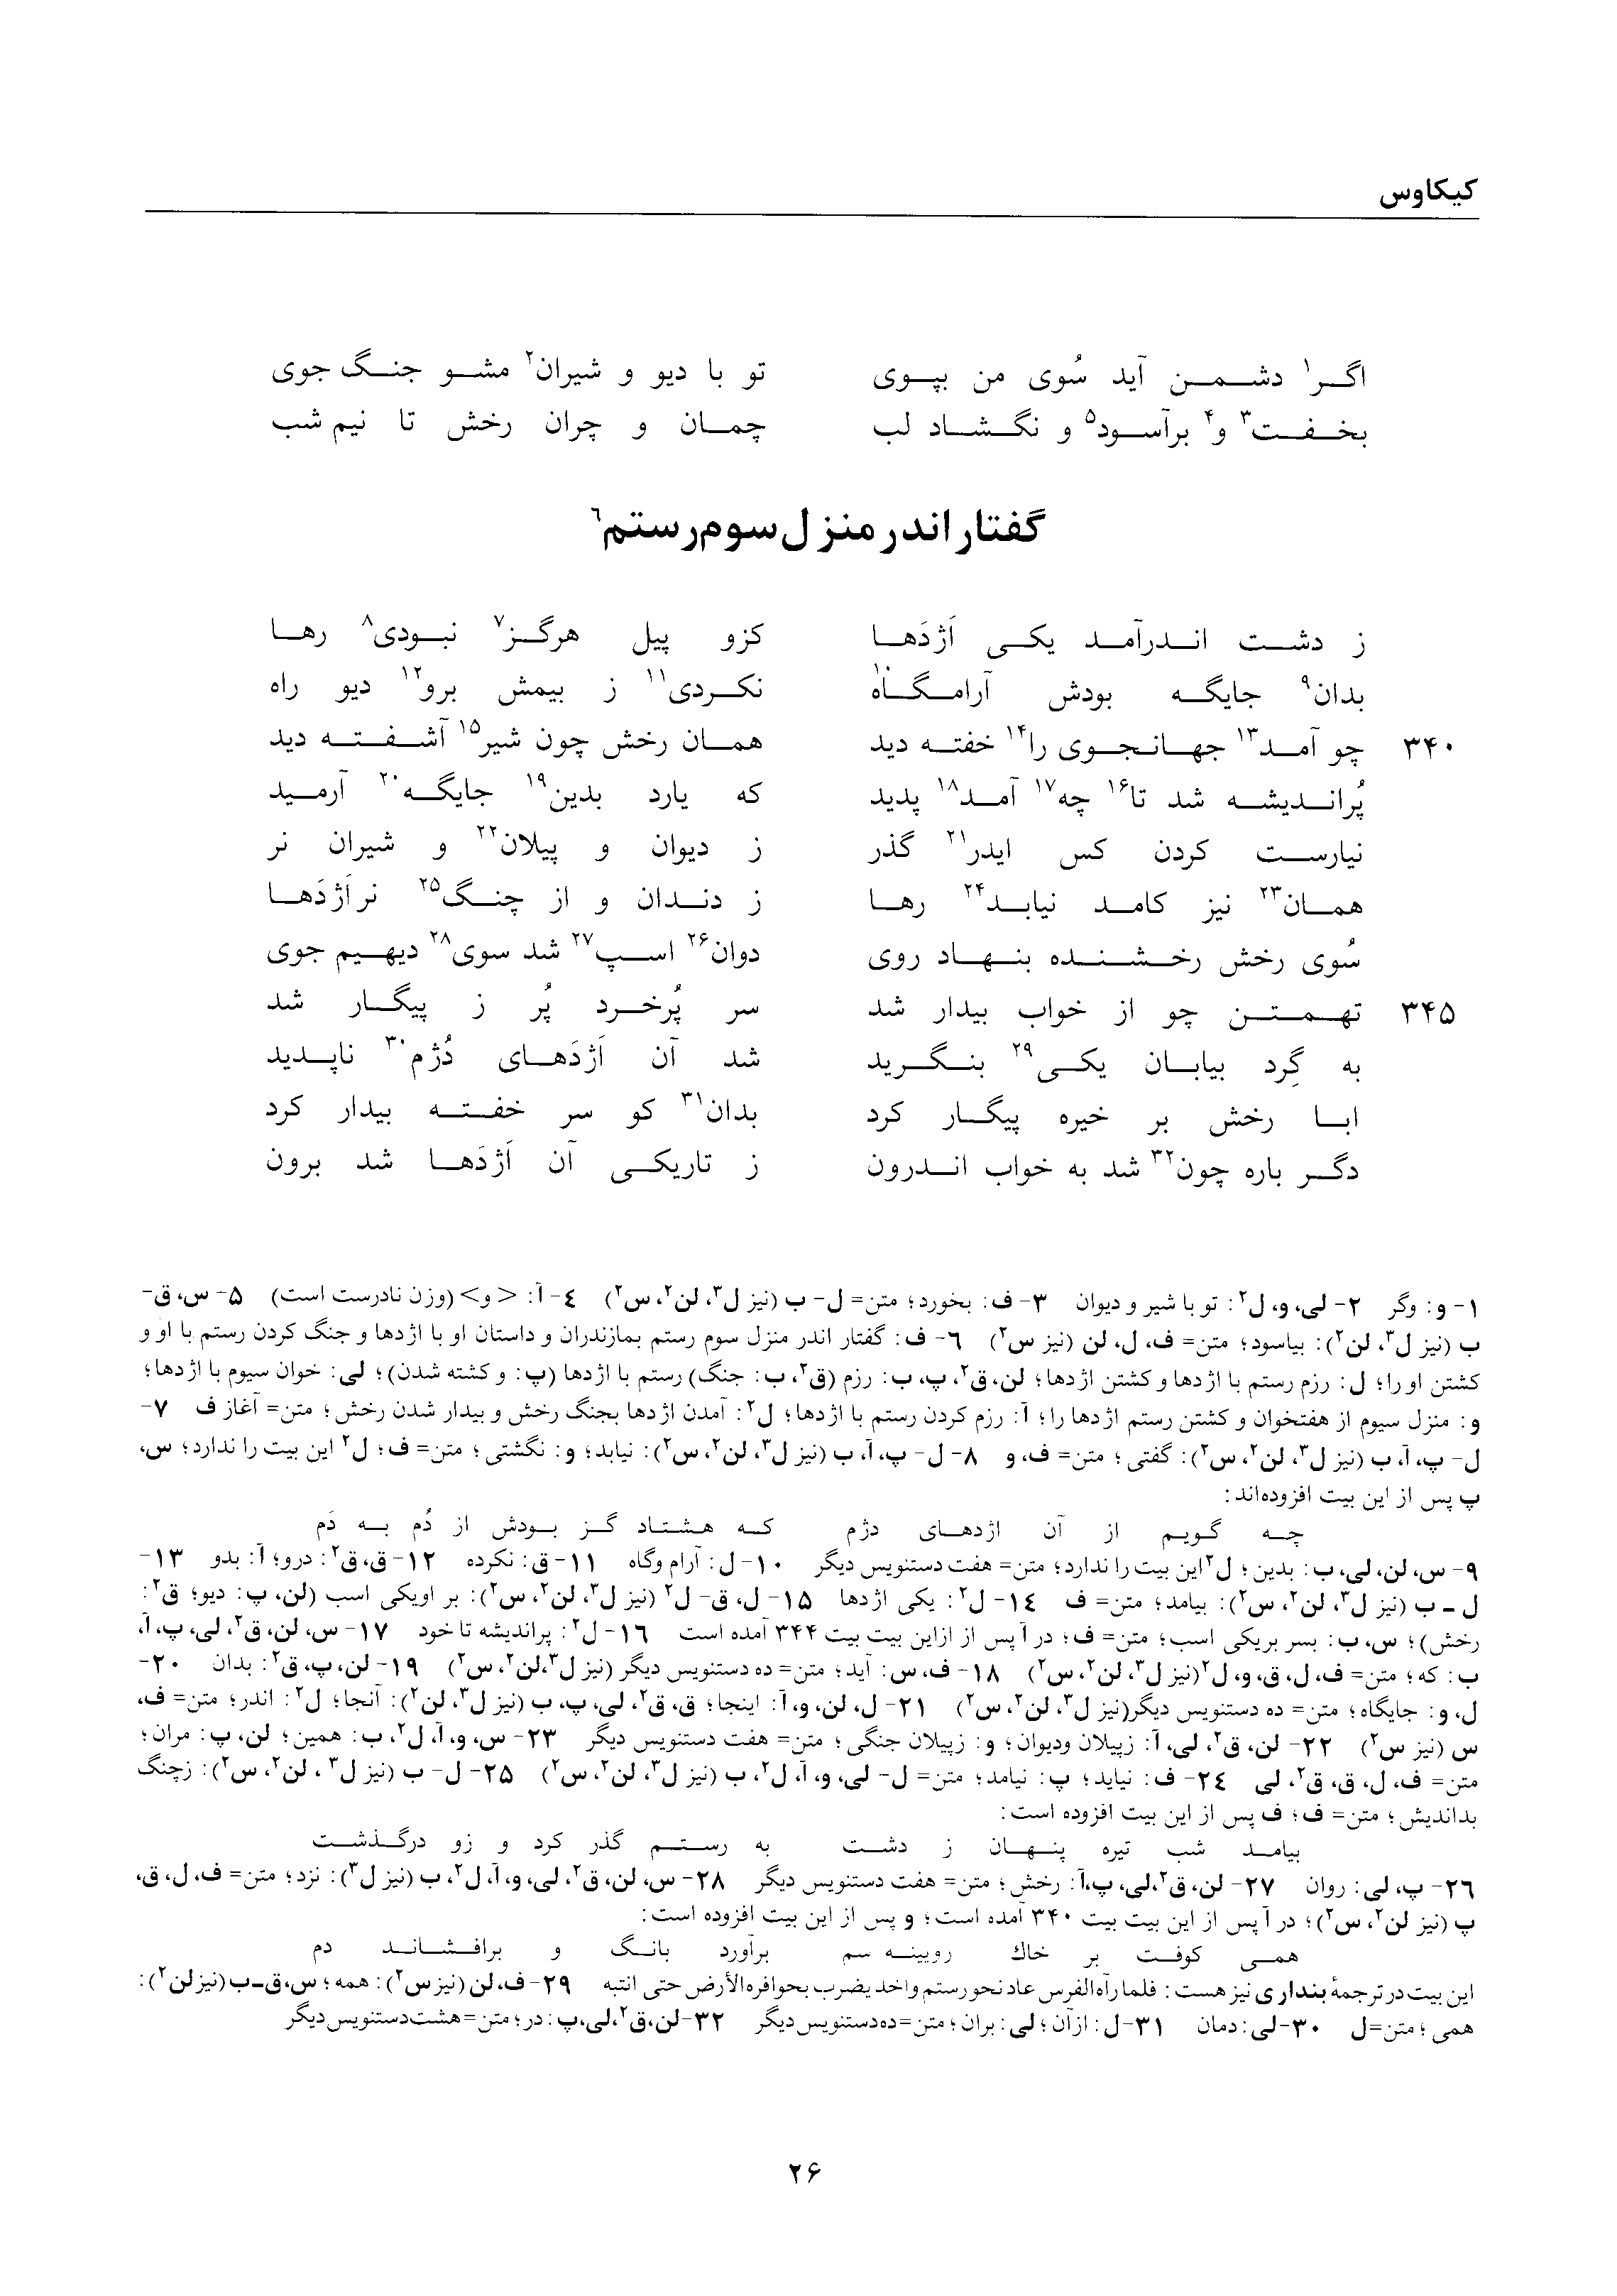 کیکاوس
اگر۱ دشمن آید سُوی من بپوی تو با دیو و شیران۲ مشو جنگ جوی
بخفت۳ و۴ برآسود۵ و نگشاد لب چمان و چران رخش تا نیم شب
گفتار اندر منزل سوم رستم۶
ز دشت اندرآمد یکی اَژدَها کزو پیل هرگز۷ نبودی۸ رها
بدان۹ جایگه بودش آرامگاه۱۰ نکردی۱۱ ز بیمش برو۱۲ دیو راه
۳۴۰ چو آمد۱۳ جهانجوی را۱۴ خفته دید همان رخش چون شیر۱۵ آشفته دید
پُراندیشه شد تا۱۶ چه۱۷ آمد۱۸ پدید که یارد بدین۱۹ جایگه۲۰ آرمید
نیارست کردن کس ایدر۲۱ گذر ز دیوان و پیلان۲۲ و شیران نر
همان۲۳ نیز کامد نیابد۲۴ رها ز دندان و از چنگ۲۵ نراَژدَها
سُوی رخش رخشنده بنهاد روی دوان۲۶ اسپ۲۷ شد سوی۲۸ دیهیم جوی
۳۴۵ تهمتن چو از خواب بیدار شد سر پُرخرد پُر ز پیگار شد
به گِرد بیابان یکی۲۹ بنگرید شد آن اَژدَهای دُژم۳۰ ناپدید
ابا رخش بر خیره پیگار کرد بدان۳۱ کو سر خفته بیدار کرد
دگر باره چون۳۲ شد به خواب اندرون ز تاریکی آن اَژدَها شد برون
۱- و: وگر ۲- لی، و، ل۲: تو با شیر و دیوان ۳- ف: بخورد؛ متن= ل- ب (نیز ل۳، لن۲، س۲) ۴- آ: < و> (وزن نادرست است) ۵- س، ق-
ب (نیز ل۳، لن۲): بیاسود؛ متن= ف، ل، لن (نیز س۲) ۶- ف: گفتار اندر منزل سوم رستم بمازندران و داستان او با اژدها و جنگ کردن رستم با او و
کشتن او را؛ ل: رزم رستم با اژدها و کشتن اژدها؛ لن، ق۲، پ، ب: رزم (ق۲، ب: جنگ) رستم با اژدها (پ: و کشته شدن)؛ لی: خوان سیوم با اژدها؛
و: منزل سیوم از هفتخوان و کشتن رستم اژدها را؛ آ: رزم کردن رستم با اژدها؛ ل۲: آمدن اژدها بجنگ رخش و بیدار شدن رخش؛ متن= آغاز ف ۷-
ل- پ، آ، ب (نیز ل۳، لن۲، س۲): گفتی؛ متن= ف، و ۸- ل- پ، آ، ب (نیز ل۳، لن۲، س۲): نیابد؛ و: نگشتی؛ متن= ف؛ ل۲ این بیت را ندارد؛ س،
پ پس از این بیت افزوده‌اند:
چه گویم از آن اژدهای دژم که هشتاد گز بودش از دُم به دَم
۹- س، لن، لی، ب: بدین؛ ل۲ این بیت را ندارد؛ متن= هفت دستنویس دیگر ۱۰- ل: آرام وگاه ۱۱- ق: نکرده ۱۲- ق، ق۲: درو؛ آ: بدو ۱۳-
ل ـ ب (نیز ل۳، لن۲، س۲): بیامد؛ متن= ف ۱۴- ل۲: یکی اژدها ۱۵- ل، ق- ل۲ (نیز ل۳، لن۲، س۲): بر اویکی اسب (لن، پ: دیو؛ ق۲:
رخش)؛ س، ب: بسر بریکی اسب؛ متن= ف؛ در آ پس از ازاین بیت بیت ۳۴۴ آمده است ۱۶- ل۲: پراندیشه تا خود ۱۷- س، لن، ق۲، لی، پ، آ،
ب: که؛ متن= ف، ل، ق، و، ل۲(نیز ل۳، لن۲، س۲) ۱۸- ف، س: آید؛ متن= ده دستنویس دیگر (نیز ل۳،لن۲، س۲) ۱۹- لن، پ، ق۲: بدان ۲۰-
ل، و: جایگاه؛ متن= ده دستنویس دیگر(نیز ل۳، لن۲، س۲) ۲۱- ل، لن، و، آ: اینجا؛ ق، ق۲، لی، پ، ب (نیز ل۳، لن۲): آنجا؛ ل۲: اندر؛ متن= ف،
س (نیز س۲) ۲۲- لن، ق۲، لی، آ: زپیلان ودیوان؛ و: زپیلان جنگی؛ متن= هفت دستنویس دیگر ۲۳- س، و، آ، ل۲، ب: همین؛ لن، پ: مران؛
متن= ف، ل، ق، ق۲، لی ۲۴- ف: نیاید؛ پ: نیامد؛ متن= ل- لی، و، آ، ل۲، ب (نیز ل۳، لن۲، س۲) ۲۵- ل- ب (نیز ل۳ ، لن۲، س۲): زچنگ
بداندیش؛ متن= ف؛ ف پس از این بیت افزوده است:
بیامد شب تیره پنهان ز دشت به رستم گذر کرد و زو درگذشت
۲۶- پ، لی: روان ۲۷- لن، ق۲،لی، پ،آ: رخش؛ متن= هفت دستنویس دیگر ۲۸- س، لن، ق۲، لی، و، آ، ل۲، ب (نیز ل۳): نزد؛ متن= ف، ل، ق،
پ (نیز لن۲، س۲)؛ در آ پس از این بیت بیت ۳۴۰ آمده است؛ و پس از این بیت افزوده است:
همی کوفت بر خاك رویینه سم برآورد بانگ و برافشاند دم
این بیت در ترجمهٔ بنداری نیز هست: فلما رآه الفرس عاد نحو رستم واخد یضرب بحوافره الأرض حتی انتبه ۲۹- ف، لن (نیز س۲): همه؛ س، ق-ب (نیز لن۲):
همی؛ متن=ل ۳۰-لی: دمان ۳۱-ل: ازآن؛ لی: بران؛ متن=ده دستنویس دیگر ۳۲-لن،ق۲،لی،پ: در؛ متن=هشت دستنویس دیگر
۲۶